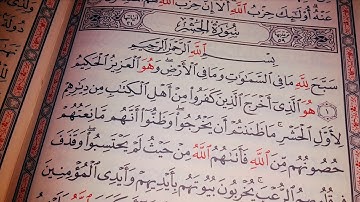 عَنْهُ أُولَٰئِكَ حِزْبُ اللَّهِ أَلَا إِنَّ حِزْبَ
سُورَةُ الْحَشْرِ
بِسْمِ اللَّهِ الرَّحْمَٰنِ الرَّحِيمِ
سَبَّحَ لِلَّهِ مَا فِي السَّمَاوَاتِ وَمَا فِي الْأَرْضِ وَهُوَ الْعَزِيزُ الْحَكِيمُ
١ هُوَ الَّذِي أَخْرَجَ الَّذِينَ كَفَرُوا مِنْ أَهْلِ الْكِتَابِ مِن دِيَارِهِمْ
لِأَوَّلِ الْحَشْرِ مَا ظَنَنتُمْ أَن يَخْرُجُوا وَظَنُّوا أَنَّهُم مَّانِعَتُهُمْ
حُصُونُهُم مِّنَ اللَّهِ فَأَتَاهُمُ اللَّهُ مِنْ حَيْثُ لَمْ يَحْتَسِبُوا وَقَذَفَ
فِي قُلُوبِهِمُ الرُّعْبَ يُخْرِبُونَ بُيُوتَهُم بِأَيْدِيهِمْ وَأَيْدِي الْمُؤْمِنِينَ